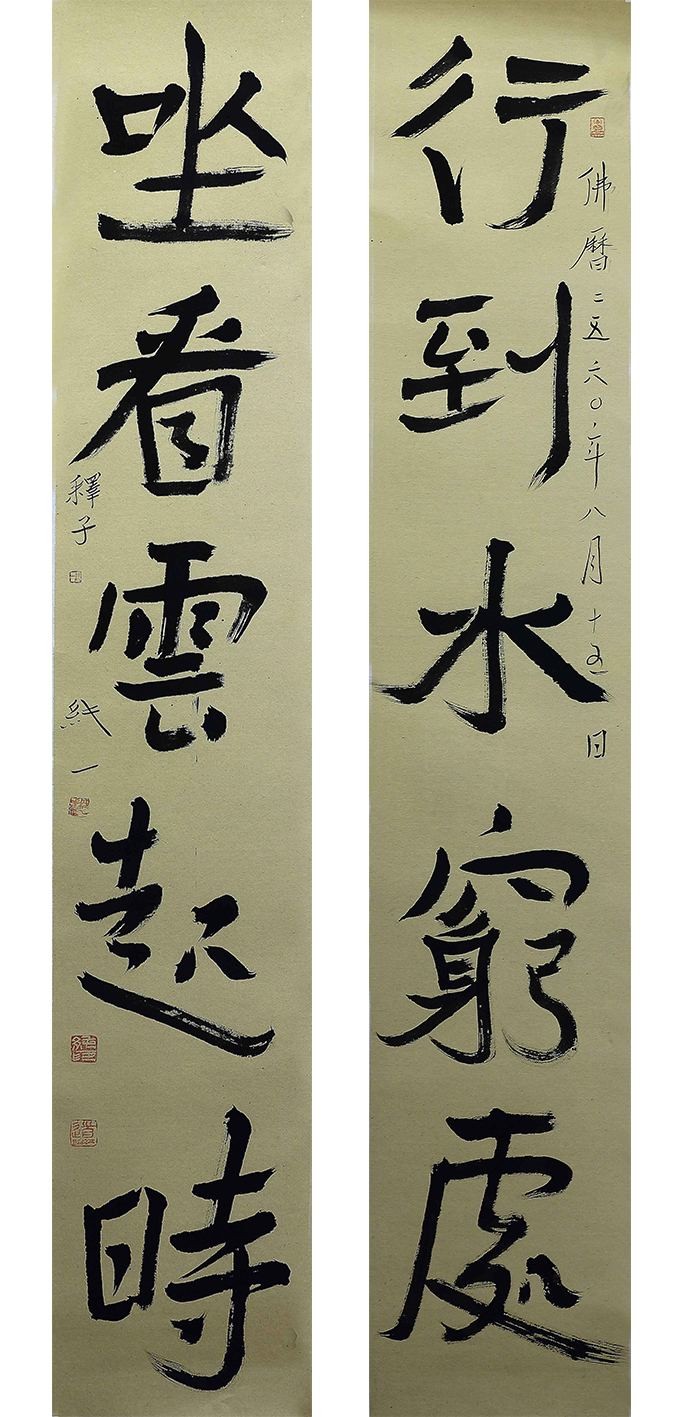 行到水窮處
佛曆二五六〇年八月十五日
坐看雲起時
釋子
純一